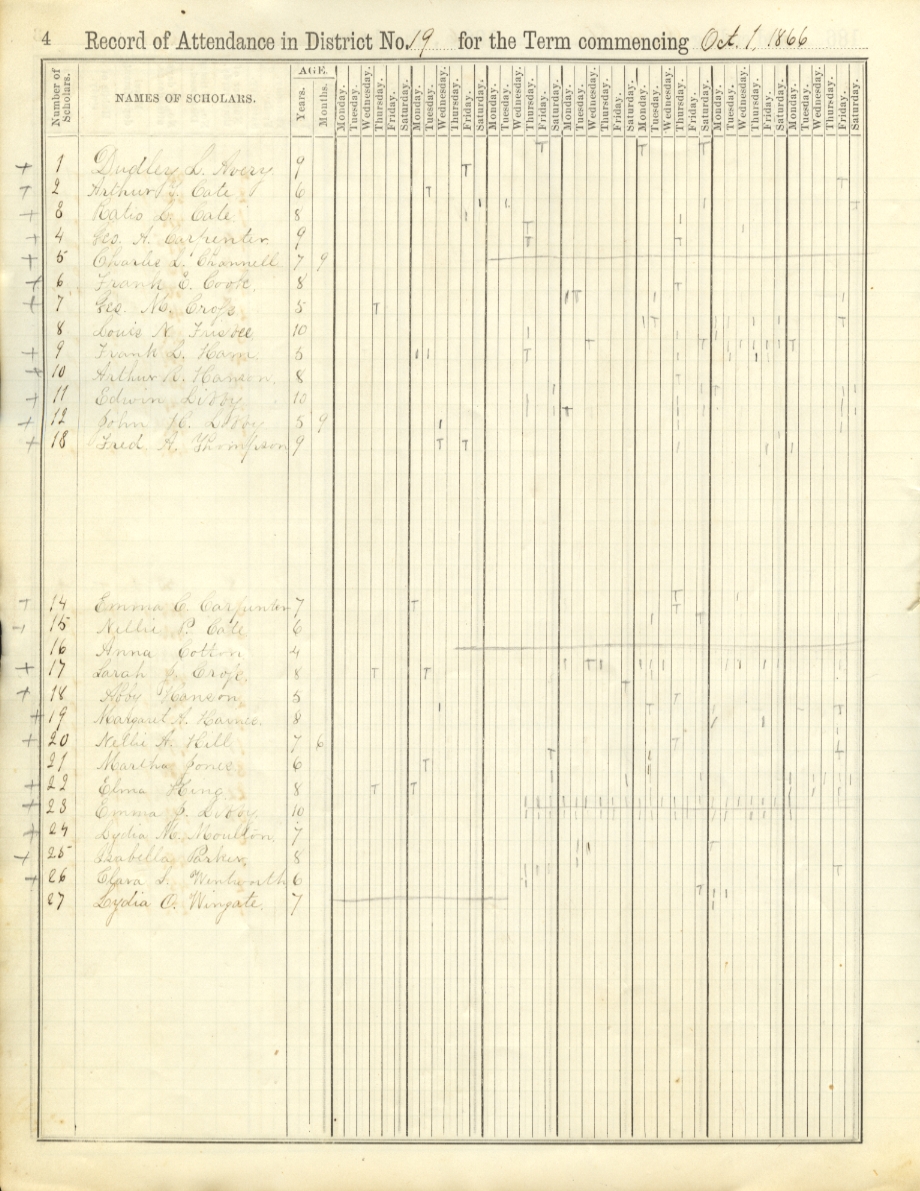 4 Record of Attendance in District No. 19 for the Term commencing Oct. 1, 1866
Number of Scholars. NAMES OF SCHOLARS. AGE. Years. Months. Monday. Tuesday. Wednesday. Thursday. Friday. Saturday. Monday. Tuesday. Wednesday. Thursday. Friday. Saturday. Monday. Tuesday. Wednesday. Thursday. Friday. Saturday. Monday. Tuesday. Wednesday. Thursday. Friday. Saturday. Monday. Tuesday. Wednesday. Thursday. Friday. Saturday. Monday. Tuesday. Wednesday. Thursday. Friday. Saturday. Monday. Tuesday. Wednesday. Thursday. Friday. Saturday.
+ 1 Dudley L. Avery 9
+ 2 Arthur Cate 6
+ 3 Katie L. Cate 8
+ 4 Geo. A. Carpenter 9
+ 5 Charlie L. Channell 7 9
+ 6 Frank E. Cook. 8
+ 7 Geo. M. Cross 5
8 Louis N. 10
+ 9 Frank L. Ham. 5
+ 10 Arthur R. Hanson. 8
+ 11 Edwin Libby 10
+ 12 John H. Libby 5 9
+ 13 Fred. A. Thompson 9
+ 14 Emma C. Carpenter 7
+ 15 Nellie P. Cate 6
16 Anna Cotton 4
+ 17 Sarah J. Cross. 8
+ 18 Abby Hanson 5
+ 19 Margaret A. Haines. 8
+ 20 Nellie A. Hill 7 6
21 Martha Jones 6
+ 22 Elma King 8
+ 23 Emma J. Libby 10
+ 24 Lydia M. Moulton. 7
+ 25 Isabella Parker. 8
+ 26 Clara Wentworth 6
27 Lydia O. Wingate. 7